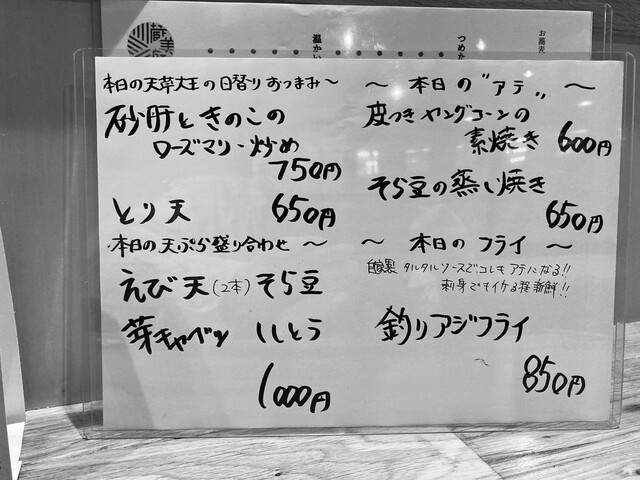 蔵美
温かい
つめた
お蕎麦
本日の天草大王の日替り おつまみ〜
砂肝ときのこの
ローズマリー炒め
750円
とり天 650円
本日の天ぷら盛り合わせ 〜
えび天(2本) そら豆
芽キャベツ ししとう
1000円
〜 本日の"アテ" 〜
皮つきヤングコーンの
素焼き 600円
そら豆の蒸し焼き
650円
〜 本日の フライ 〜
自家製 タルタルソースでコレもアテになる!!
刺身でもイケる程新鮮!!
釣りアジフライ
850円